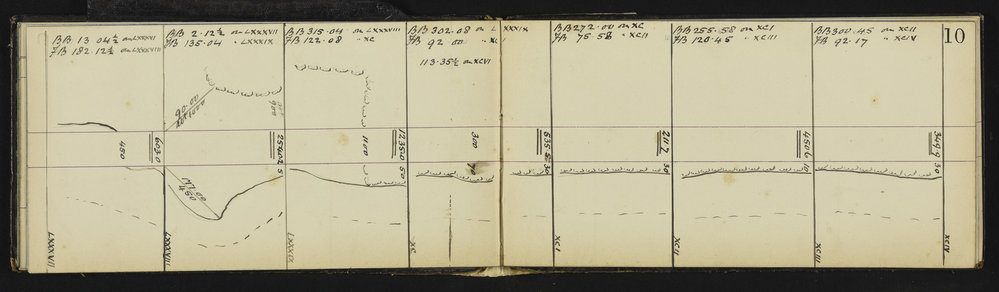 BB 13 04½ on LXXXVI
FB 182.12½ on LXXXVIII
BB 2.12½ on LXXXVII
FB 135.04 " LXXXIX
BB 315.04 on LXXXVIII
FB 122.08 " XC
BB 302.08 on LXXXIX
FB 92 00 " XCI
113.35½ on XCVI
BB 272.00 on XC
FB 75.58 " XCII
BB 255.58 on XCI
FB 120.45 " XCIII
BB 300.45 on XCII
FB 92.17 " XCIV
10
90.00
900
450
603.0
2540.25
1100
1235.0
50
300
70
535.5
30
211.7
30
450.6
10
349.9
30
177.00
450
LXXXVII
LXXXVIII
LXXXIX
XC
XCI
XCII
XCIII
XCIV